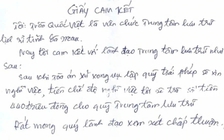 GIẤY CAM KẾT
Tôi: Trần Quốc Việt là viên chức Trung tâm lưu trữ
lịch sử tỉnh
Nay tôi cam kết với lãnh đạo Trung tâm lưu trữ như
Sau:
Sau khi xin xong quý lãnh phép
nghỉ việc, tiền chế độ nghỉ việc tôi sẽ trả số tiền
triệu đồng cho quý Trung tâm lưu trữ
Rất mong quý lãnh đạo xem xét chấp thuận.